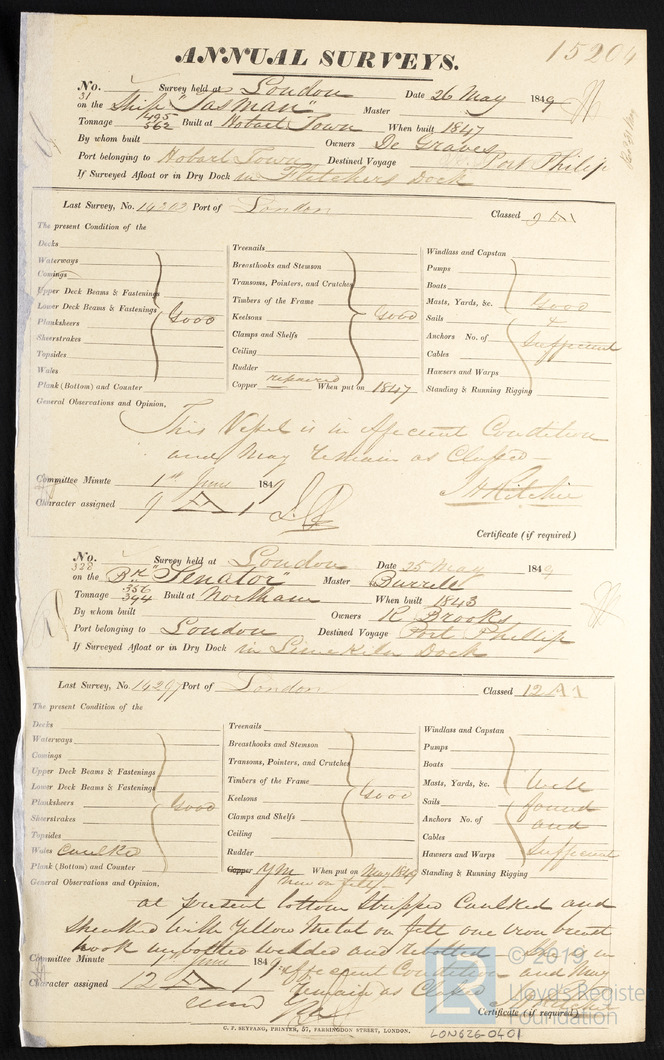 15204
ANNUAL SURVEYS.
No. 31 Survey held at London Date 26 May 1849
on the Ship "Tasman" Master
Tonnage 495 562 Built at Hobart Town When built 1847
By whom built Owners De Graves
Port belonging to Hobart Town Destined Voyage Port Philip
If Surveyed Afloat or in Dry Dock in Fletchers Dock
Last Survey, No. 14212 Port of London Classed 9 A1
The present Condition of the
Decks
Waterways
Comings
Upper Deck Beams & Fastenings
Lower Deck Beams & Fastenings
Planksheers
Sheerstrakes
Topsides
Wales
Plank (Bottom) and Counter
Good
Treenails
Breasthooks and Stemson
Transoms, Pointers, and Crutches
Timbers of the Frame
Keelsons
Clamps and Shelfs
Ceiling
Rudder
Copper repaired When put on 1847
Good
Windlass and Capstan
Pumps
Boats
Masts, Yards, &c.
Sails
Anchors No. of
Cables
Hawsers and Warps
Standing & Running Rigging
Good
&
Sufficient
General Observations and Opinion,
This Vessel is in efficient Condition
and May remain as Classed -
Committee Minute 1st June 1849
Character assigned 9 A 1
J H Ritchie
Certificate (if required)
No. 328 Survey held at London Date 25 May 1849
on the Bk "Senator" Master Burrell
Tonnage 356 394 Built at Northam When built 1843
By whom built Owners R Brooks
Port belonging to London Destined Voyage Port Phillip
If Surveyed Afloat or in Dry Dock in Limekiln Dock
Last Survey, No. 14297 Port of London Classed 12 A1
The present Condition of the
Decks
Waterways
Comings
Upper Deck Beams & Fastenings
Lower Deck Beams & Fastenings
Planksheers
Sheerstrakes
Topsides
Wales Caulked
Plank (Bottom) and Counter
Good
Treenails
Breasthooks and Stemson
Transoms, Pointers, and Crutches
Timbers of the Frame
Keelsons
Clamps and Shelfs
Ceiling
Rudder
Copper YM When put on May 1849
new on felt -
Good
Windlass and Capstan
Pumps
Boats
Masts, Yards, &c.
Sails
Anchors No. of
Cables
Hawsers and Warps
Standing & Running Rigging
Well
found
and
Sufficient
General Observations and Opinion,
at present bottom stripped Caulked and
sheathed with Yellow Metal on felt one iron breast
hook unbolted welded and rebolted - Ship in
Committee Minute 1st June 1849 efficient Condition - and May
Character assigned 12 A 1 remain as Classed
Certificate (if required)
C. F. SEYFANG, PRINTER, 57, FARRINGDON STREET, LONDON.
LON626-0401
© 2019
Lloyd's Register
Foundation